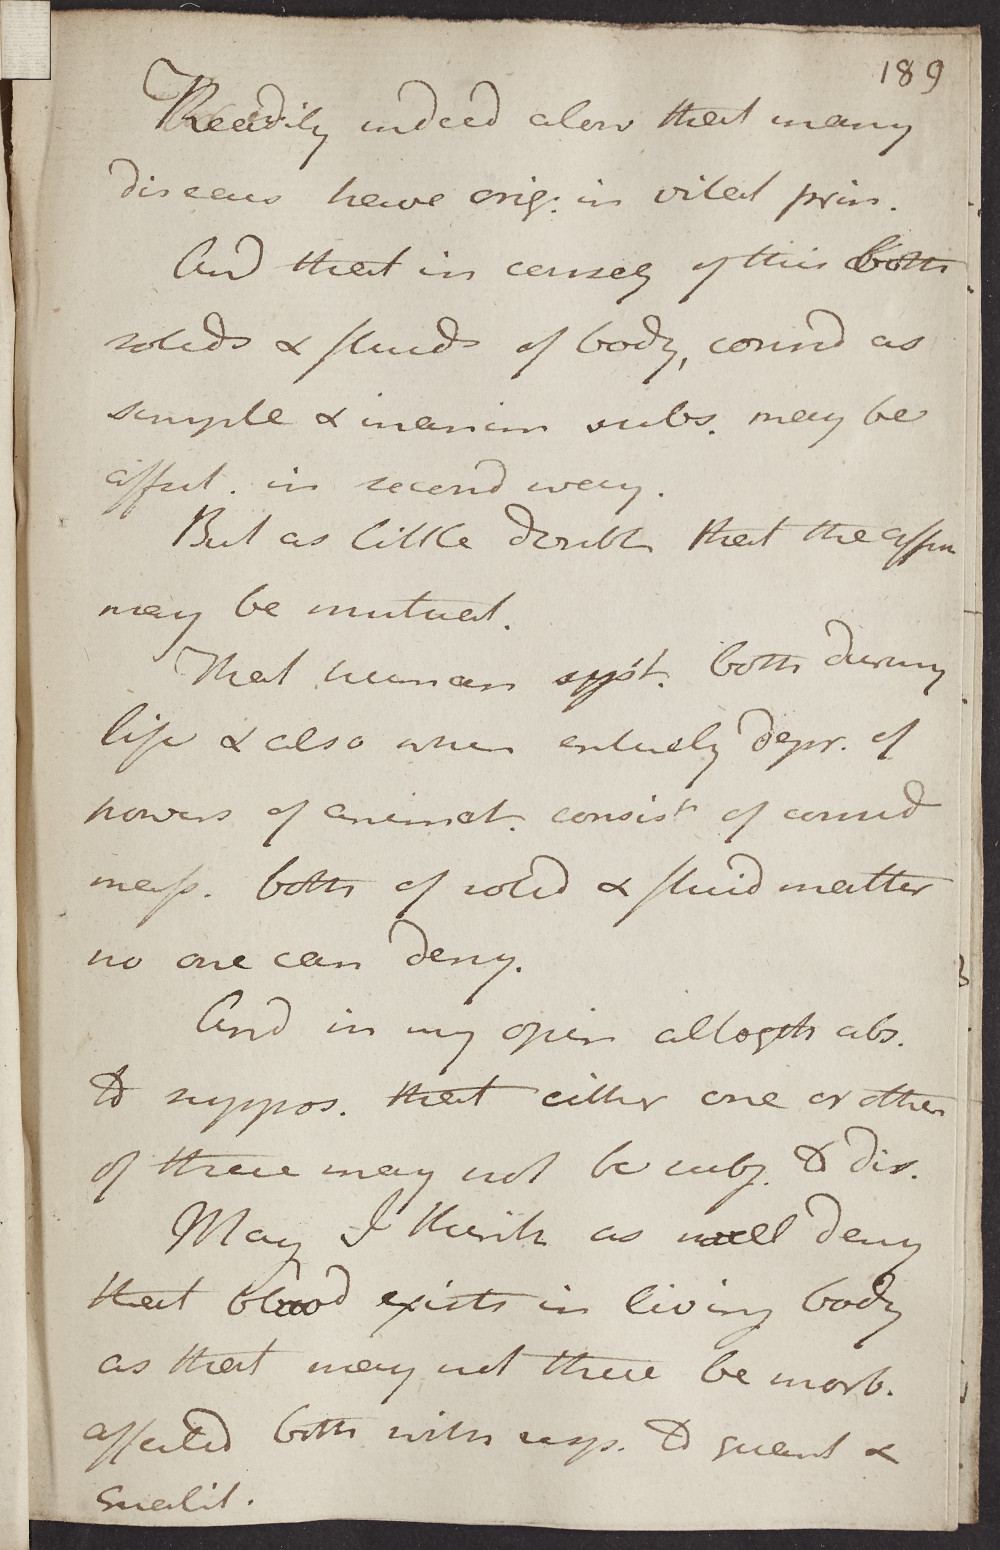 189
Readily indeed alow that many
diseases have orig. in vital prin.
And that in conseq of this both
solids & fluids of body, consid as
simple & inanim subs. may be
affect. in second way.
But as little doubt that the affn
may be mutual.
That human syst. both during
life & also when entirely depr. of
powers of animat. consist of consid
mass. both of solid & fluid matter
no one can deny.
And in my opin altogth abs.
to suppos. that either one or other
of these may not be subj. to dis.
May I think as well deny
that blood exists in living body
as that may not there be morb.
affected both with resp. to quant &
qualit.